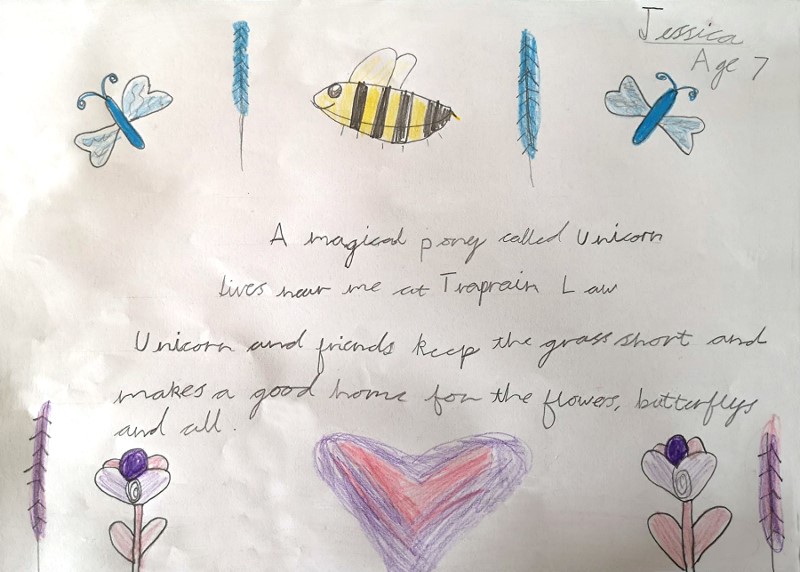 Jessica
Age 7
A magical pony called Unicorn
lives near me at Traprain Law
Unicorn and friends keep the grass short and
makes a good home for the flowers, butterflys
and all.